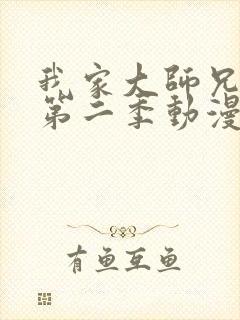 我家大師兄
第二季動漫
有魚互魚